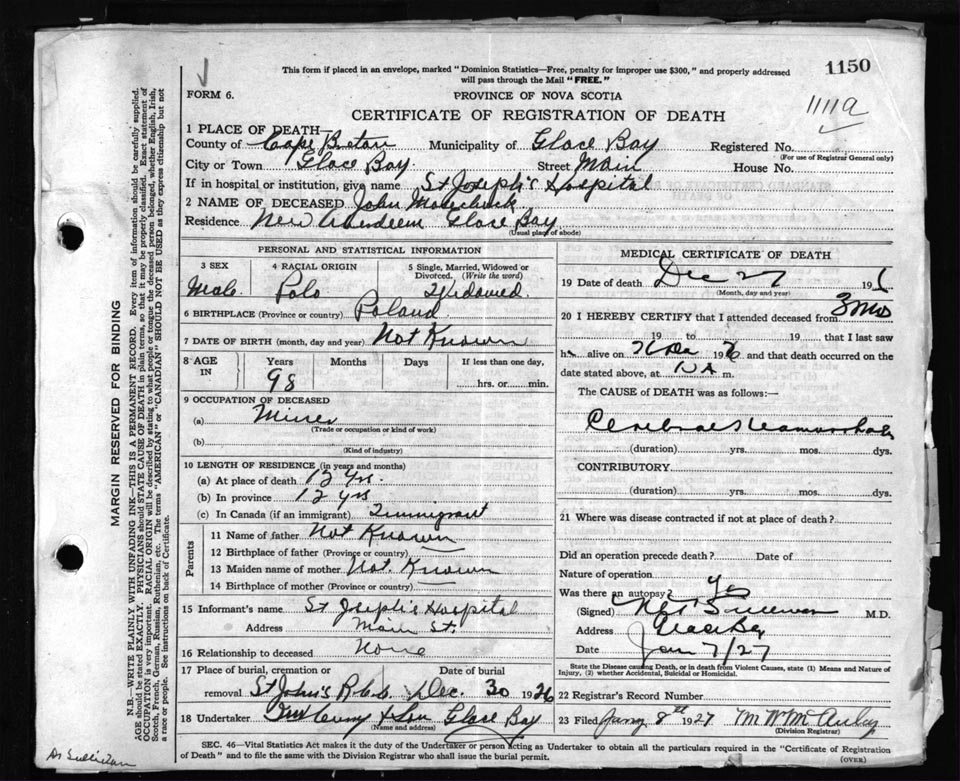 1150
1111a
This form if placed in an envelope, marked "Dominion Statistics—Free, penalty for improper use $300," and properly addressed
will pass through the Mail "FREE."
FORM 6.
PROVINCE OF NOVA SCOTIA
CERTIFICATE OF REGISTRATION OF DEATH
1 PLACE OF DEATH—
County of Cape Breton Municipality of Glace Bay Registered No.
(For use of Registrar General only)
City or Town Glace Bay Street Main House No.
If in hospital or institution, give name St Joseph's Hospital
2 NAME OF DECEASED John
Residence New Aberdeen Glace Bay
(Usual place of abode)
PERSONAL AND STATISTICAL INFORMATION
3 SEX 4 RACIAL ORIGIN 5 Single, Married, Widowed or Divorced. (Write the word)
Male Polo Widowed.
6 BIRTHPLACE (Province or country) Poland
7 DATE OF BIRTH (month, day and year) Not Known
8 AGE IN Years Months Days If less than one day,
98 hrs. or min.
9 OCCUPATION OF DECEASED
(a) Miner
(Trade or occupation or kind of work)
(b)
(Kind of industry)
10 LENGTH OF RESIDENCE (in years and months)
(a) At place of death 12 yrs.
(b) In province 12 yrs
(c) In Canada (if an immigrant) Immigrant
Parents
11 Name of father Not Known
12 Birthplace of father (Province or country)
13 Maiden name of mother Not Known
14 Birthplace of mother (Province or country)
15 Informant's name St Joseph's Hospital
Address Main St.
16 Relationship to deceased None
17 Place of burial, cremation or removal Date of burial
St John's Dec. 30 1926
18 Undertaker & Son Glace Bay
(Name and address)
MEDICAL CERTIFICATE OF DEATH
19 Date of death Dec 27 19
(Month, day and year)
20 I HEREBY CERTIFY that I attended deceased from 3 mos
19 to 19 that I last saw
h alive on 19 and that death occurred on the
date stated above, at m.
The CAUSE of DEATH was as follows:—
Cerebral Haemorrhage
(duration) yrs. mos. dys.
CONTRIBUTORY
(duration) yrs. mos. dys.
21 Where was disease contracted if not at place of death?
Did an operation precede death? Date of
Nature of operation
Was there an autopsy?
(Signed) Sullivan M.D.
Address Glace Bay
Date Jan 7/27
State the Disease causing Death, or in death from Violent Causes, state (1) Means and Nature of
Injury, (2) whether Accidental, Suicidal or Homicidal.
22 Registrar's Record Number
23 Filed Jany 8th 1927
(Division Registrar)
SEC. 46—Vital Statistics Act makes it the duty of the Undertaker or person acting as Undertaker to obtain all the particulars required in the "Certificate of Registration
of Death" and to file the same with the Division Registrar who shall issue the burial permit.
(OVER)
MARGIN RESERVED FOR BINDING
N.B.—WRITE PLAINLY WITH UNFADING INK—THIS IS A PERMANENT RECORD. Every item of information should be carefully supplied.
AGE should be stated EXACTLY. PHYSICIANS should STATE CAUSE OF DEATH in plain terms, so that it may be properly classified. Exact statement of
OCCUPATION is very important. RACIAL ORIGIN will be described by stating to what people or tongue the deceased person belonged, whether English, Irish,
Scotch, French, German, Russian, Ruthenian, etc. The terms "AMERICAN" or "CANADIAN" SHOULD NOT BE USED as they express citizenship but not
a race or people. See instructions on back of Certificate.
Dr Sullivan